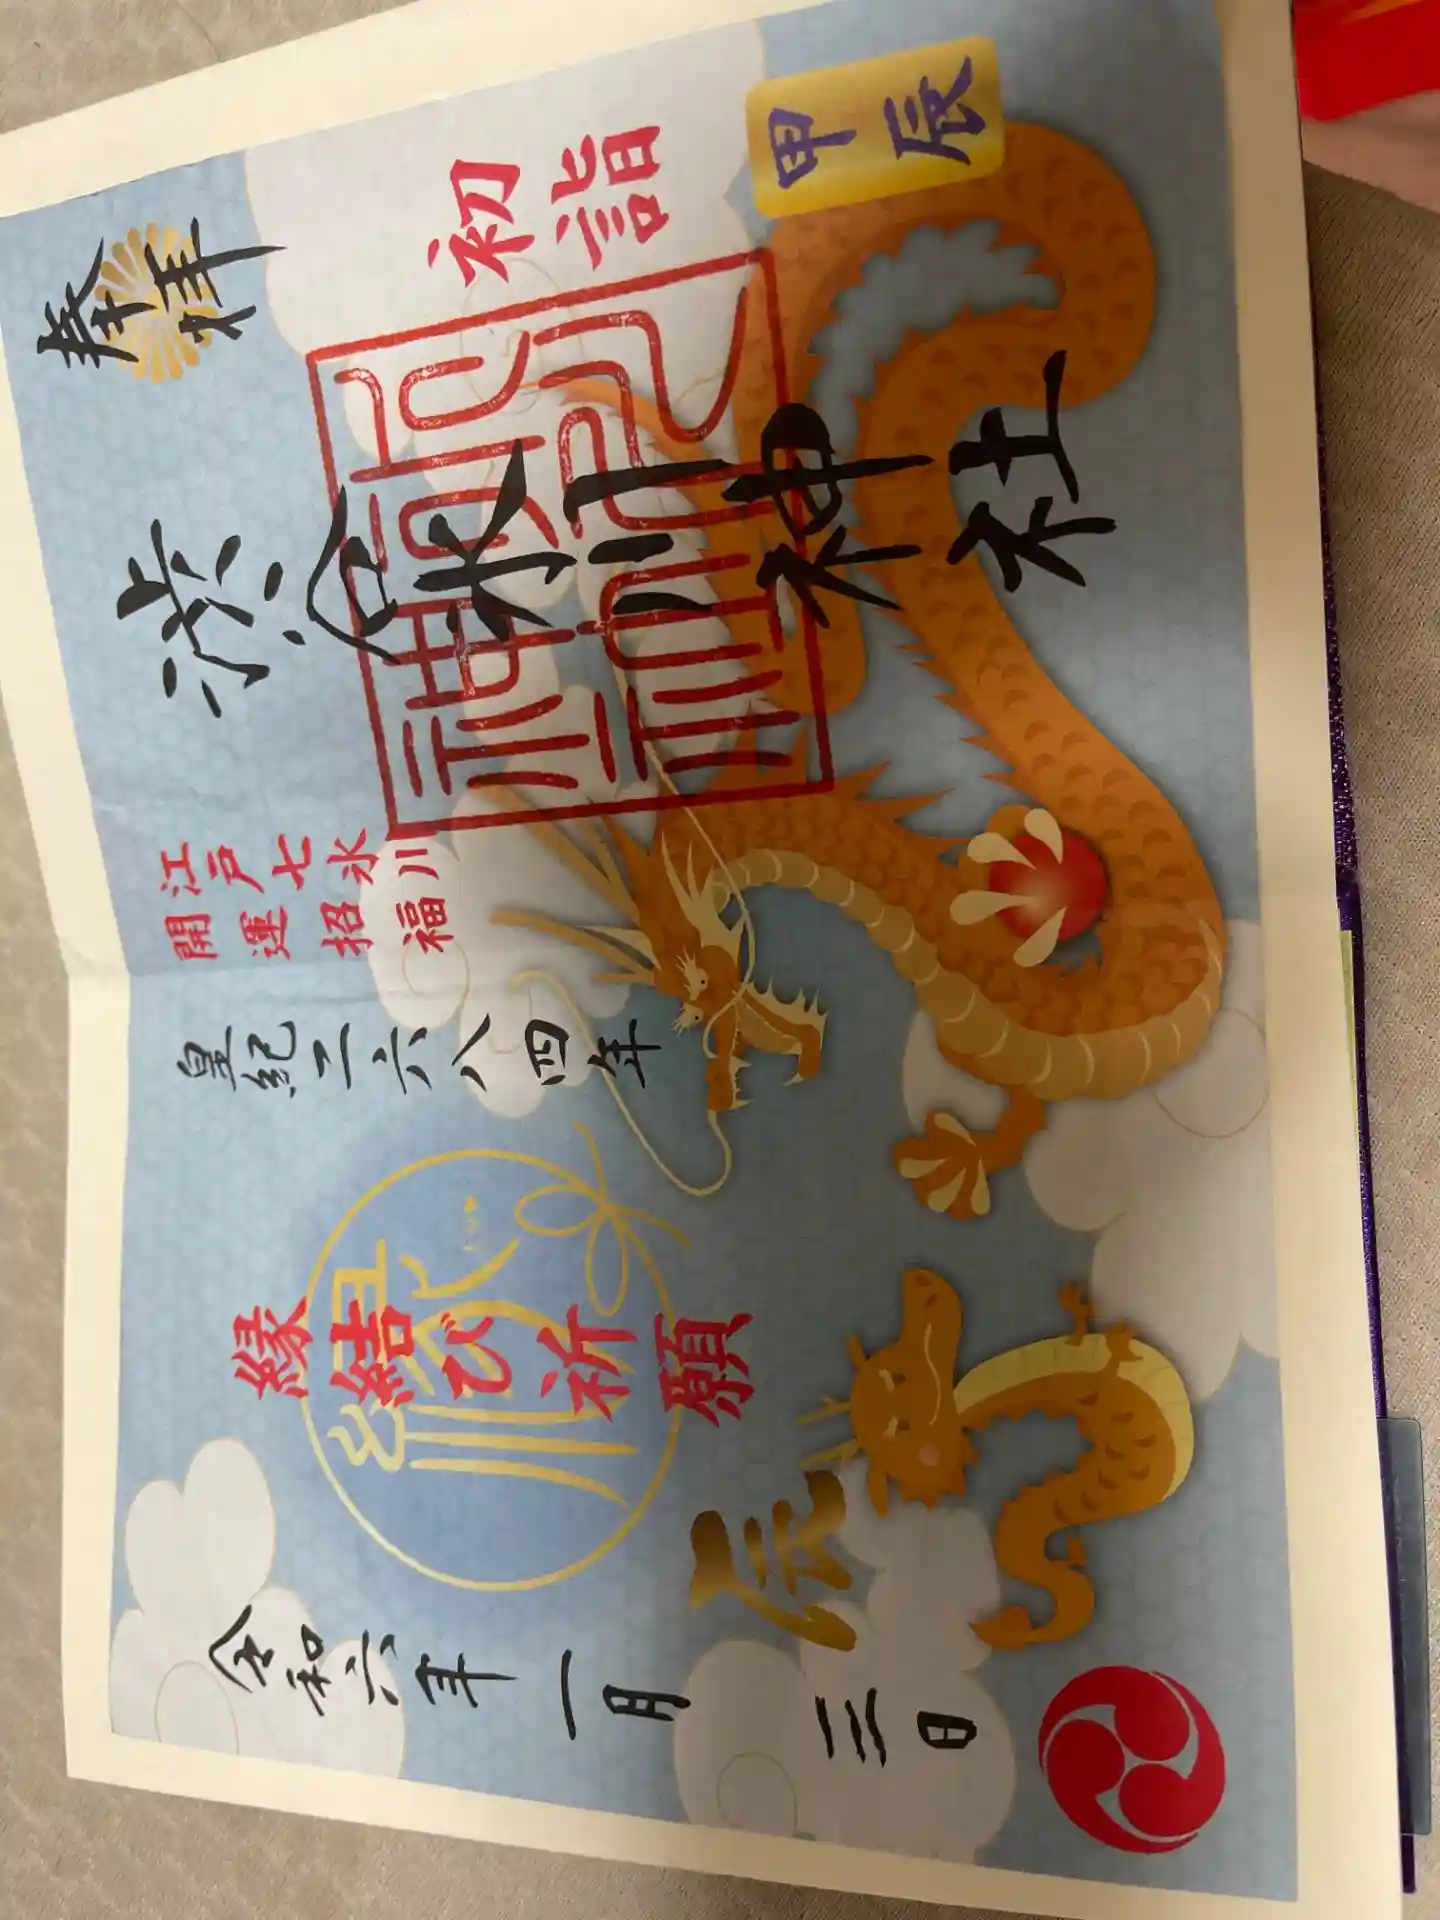 奉拝
初詣
甲辰
渋谷氷川神社
江戸七氷川
開運招福
皇紀二六八四年
縁結び祈願
辰
令和六年一月三日